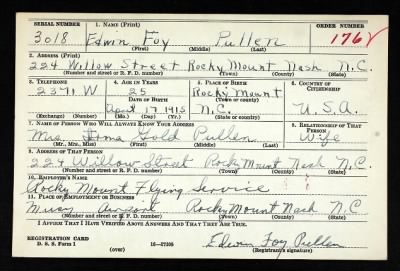 SERIAL NUMBER 1. NAME (Print) ORDER NUMBER
3018 Edwin Foy Pullen 1768
(First) (Middle) (Last)
2. ADDRESS (Print)
224 Willow Street Rocky Mount Nash N.C.
(Number and street or R. F. D. number) (Town) (County) (State)
3. TELEPHONE 4. AGE IN YEARS 5. PLACE OF BIRTH 6. COUNTRY OF CITIZENSHIP
2371 W 25 Rocky Mount
DATE OF BIRTH (Town or county)
April 17 1915 N.C. U.S.A.
(Exchange) (Number) (Mo.) (Day) (Yr.) (State or country)
7. NAME OF PERSON WHO WILL ALWAYS KNOW YOUR ADDRESS 8. RELATIONSHIP OF THAT PERSON
Mrs. Pullen Wife
(Mr., Mrs., Miss) (First) (Middle) (Last)
9. ADDRESS OF THAT PERSON
224 Willow Street Rocky Mount Nash N.C.
(Number and street or R. F. D. number) (Town) (County) (State)
10. EMPLOYER'S NAME
Rocky Mount Flying Service
11. PLACE OF EMPLOYMENT OR BUSINESS
Airport Rocky Mount Nash N.C.
(Number and street or R. F. D. number) (Town) (County) (State)
I AFFIRM THAT I HAVE VERIFIED ABOVE ANSWERS AND THAT THEY ARE TRUE.
REGISTRATION CARD
D. S. S. Form 1 (over) 16—17105 Edwin Foy Pullen
(Registrant's signature)